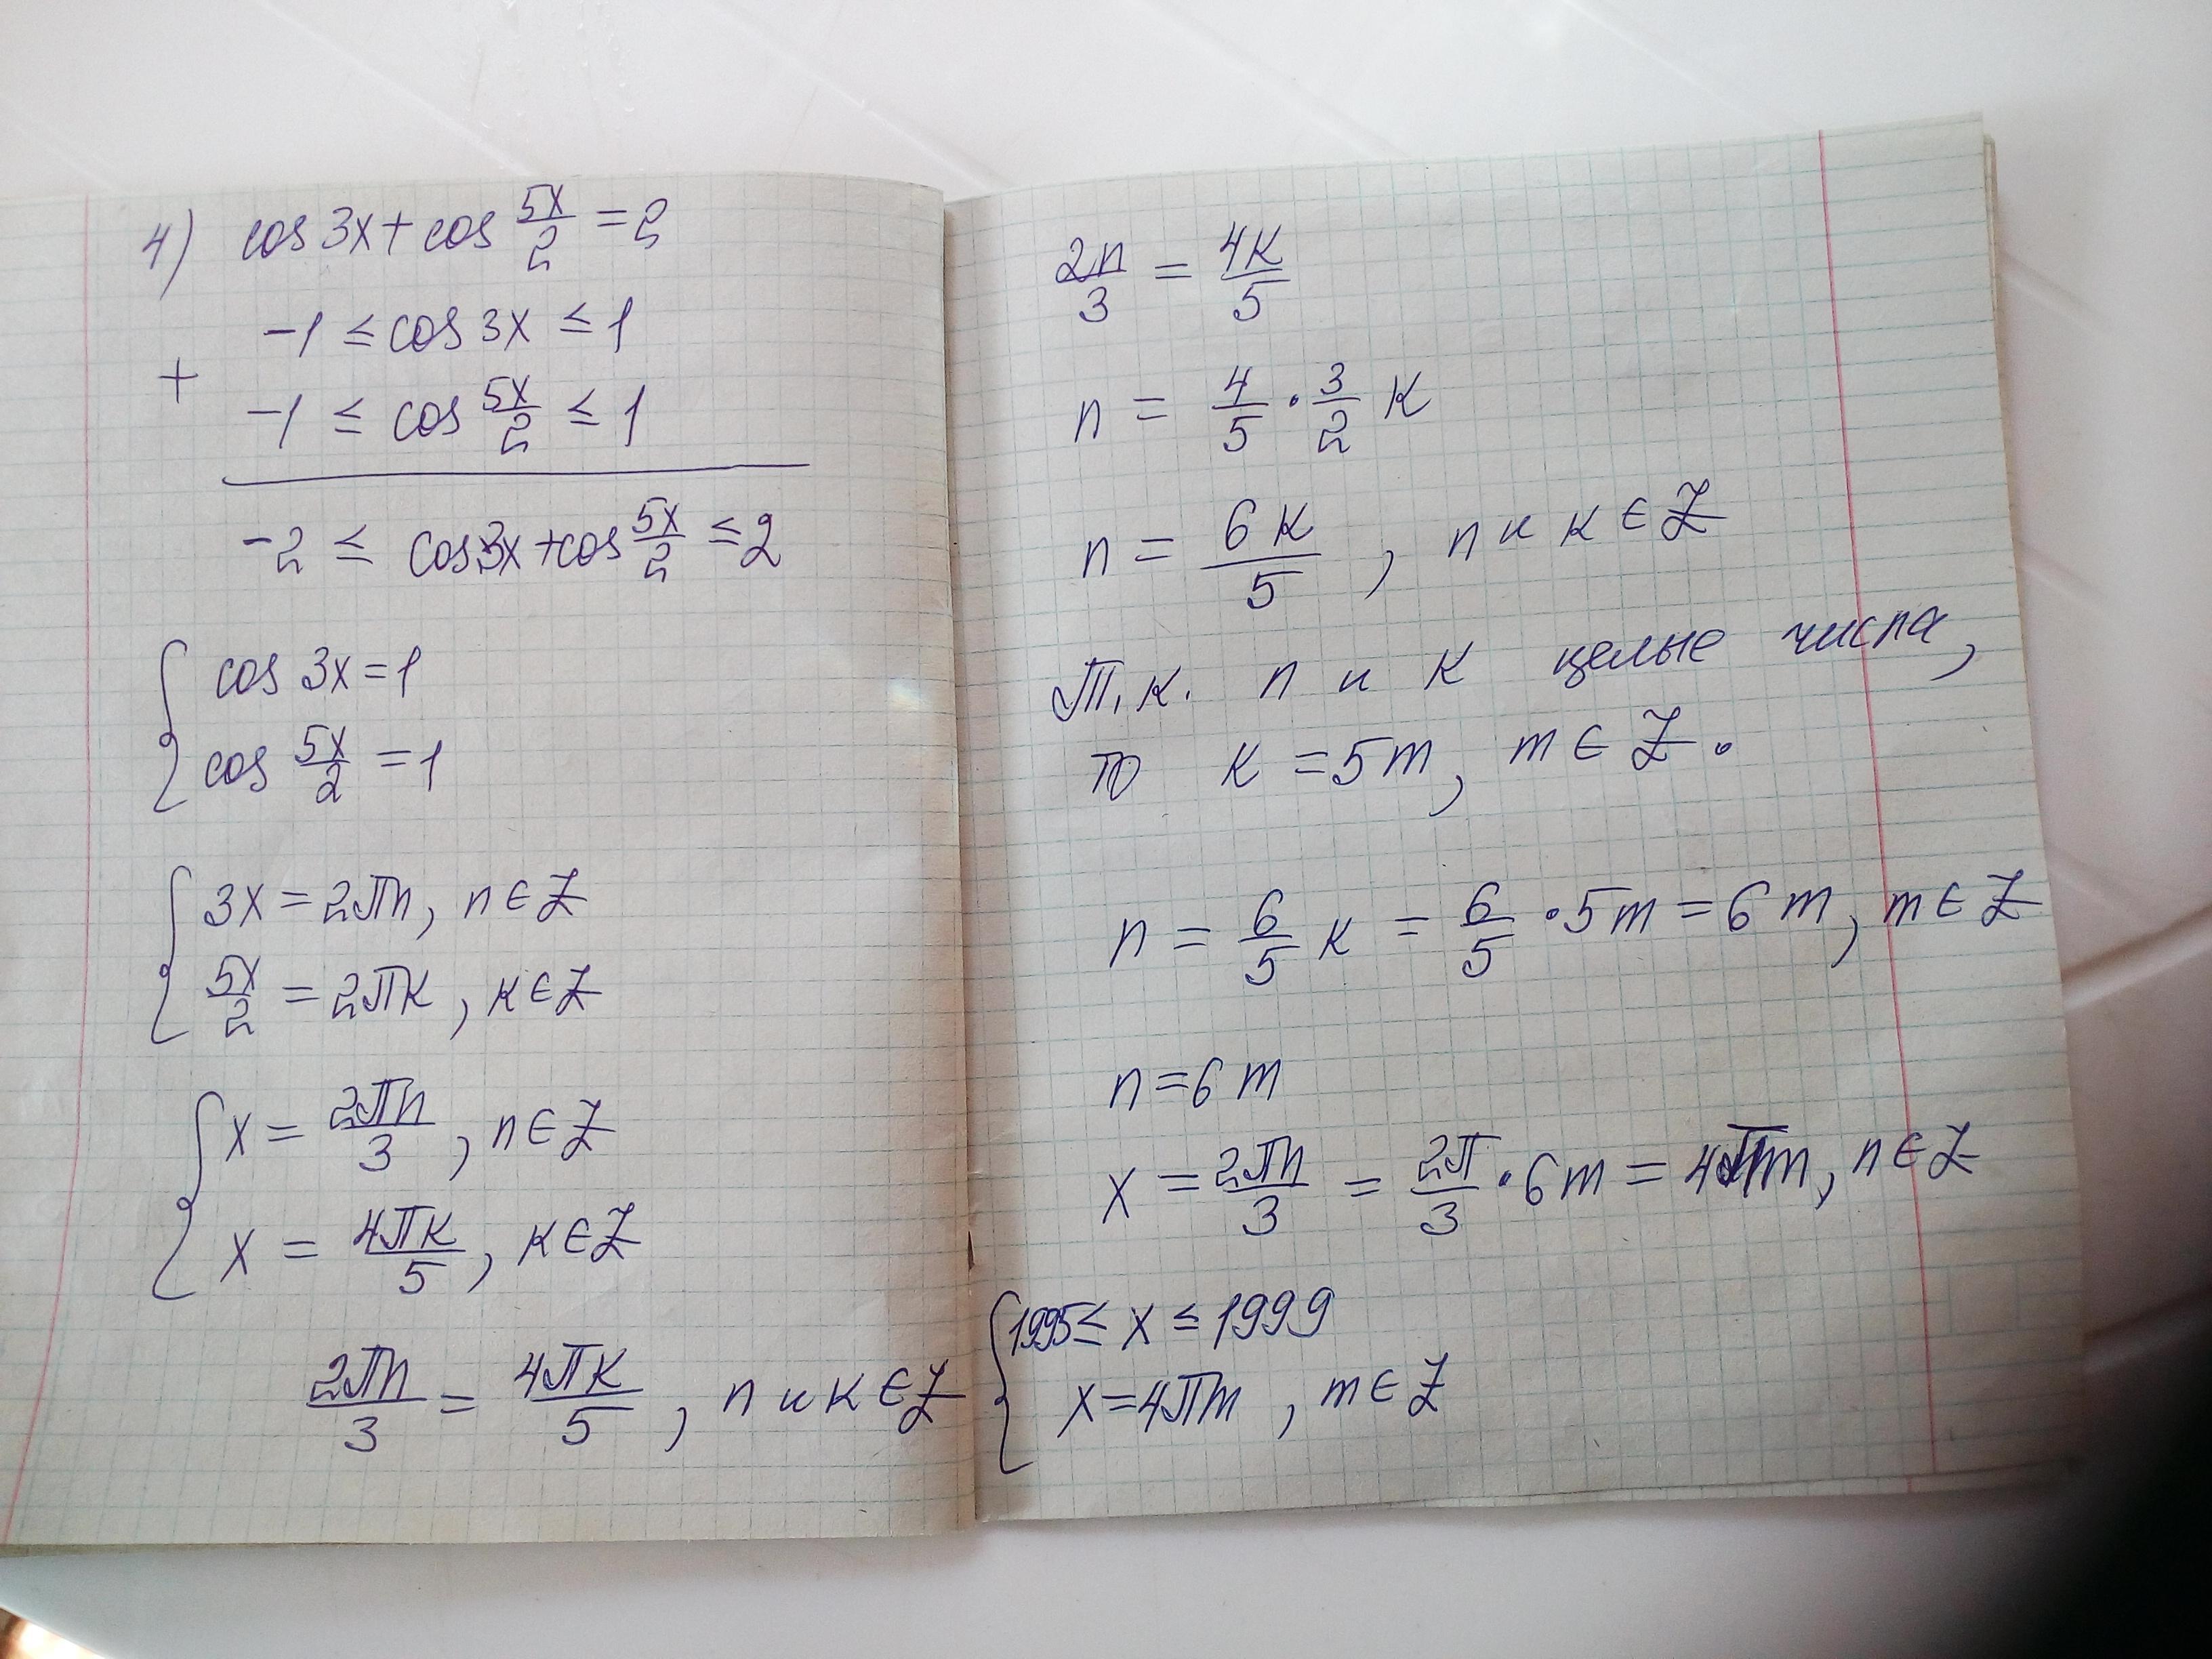 4) cos 3x + cos 5x/2 = 2
-1 ≤ cos 3x ≤ 1
+
-1 ≤ cos 5x/2 ≤ 1
-2 ≤ cos3x + cos 5x/2 ≤ 2
{ cos 3x = 1
cos 5x/2 = 1
{ 3x = 2πn, n ∈ Z
5x/2 = 2πк, к ∈ Z
{ x = 2πn/3, n ∈ Z
x = 4πк/5, к ∈ Z
2πn/3 = 4πк/5, n и к ∈ Z
2n/3 = 4к/5
n = 4/5 · 3/2 к
n = 6к/5, n и к ∈ Z
Т.к. n и к целые числа,
то к = 5m, m ∈ Z.
n = 6/5 к = 6/5 · 5m = 6m, m ∈ Z
n = 6m
x = 2πn/3 = 2π/3 · 6m = 4πm, n ∈ Z
{ 1995 ≤ x ≤ 1999
x = 4πm, m ∈ Z